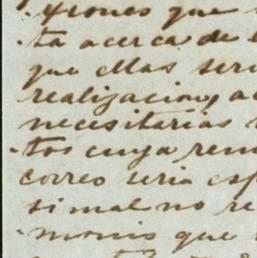 xiones que
ta acerca de
que ellas seri
realizacion, a
necesitarias
tos cuya rem
correo seria esp
si mal no re
monio que